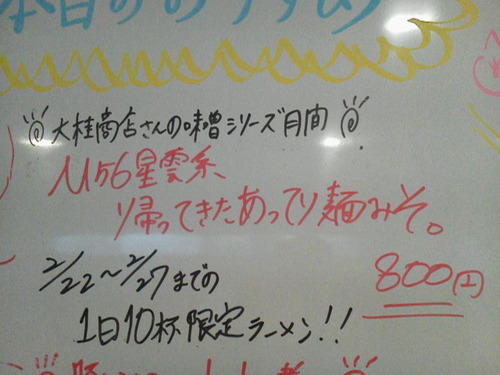 本日のおすすめ
大桂商店さんの味噌シリーズ月間
M56星雲系、
り帰ってきたあってり麺みそ。
2/22〜2/27までの
800円
1日10杯限定ラーメン!!